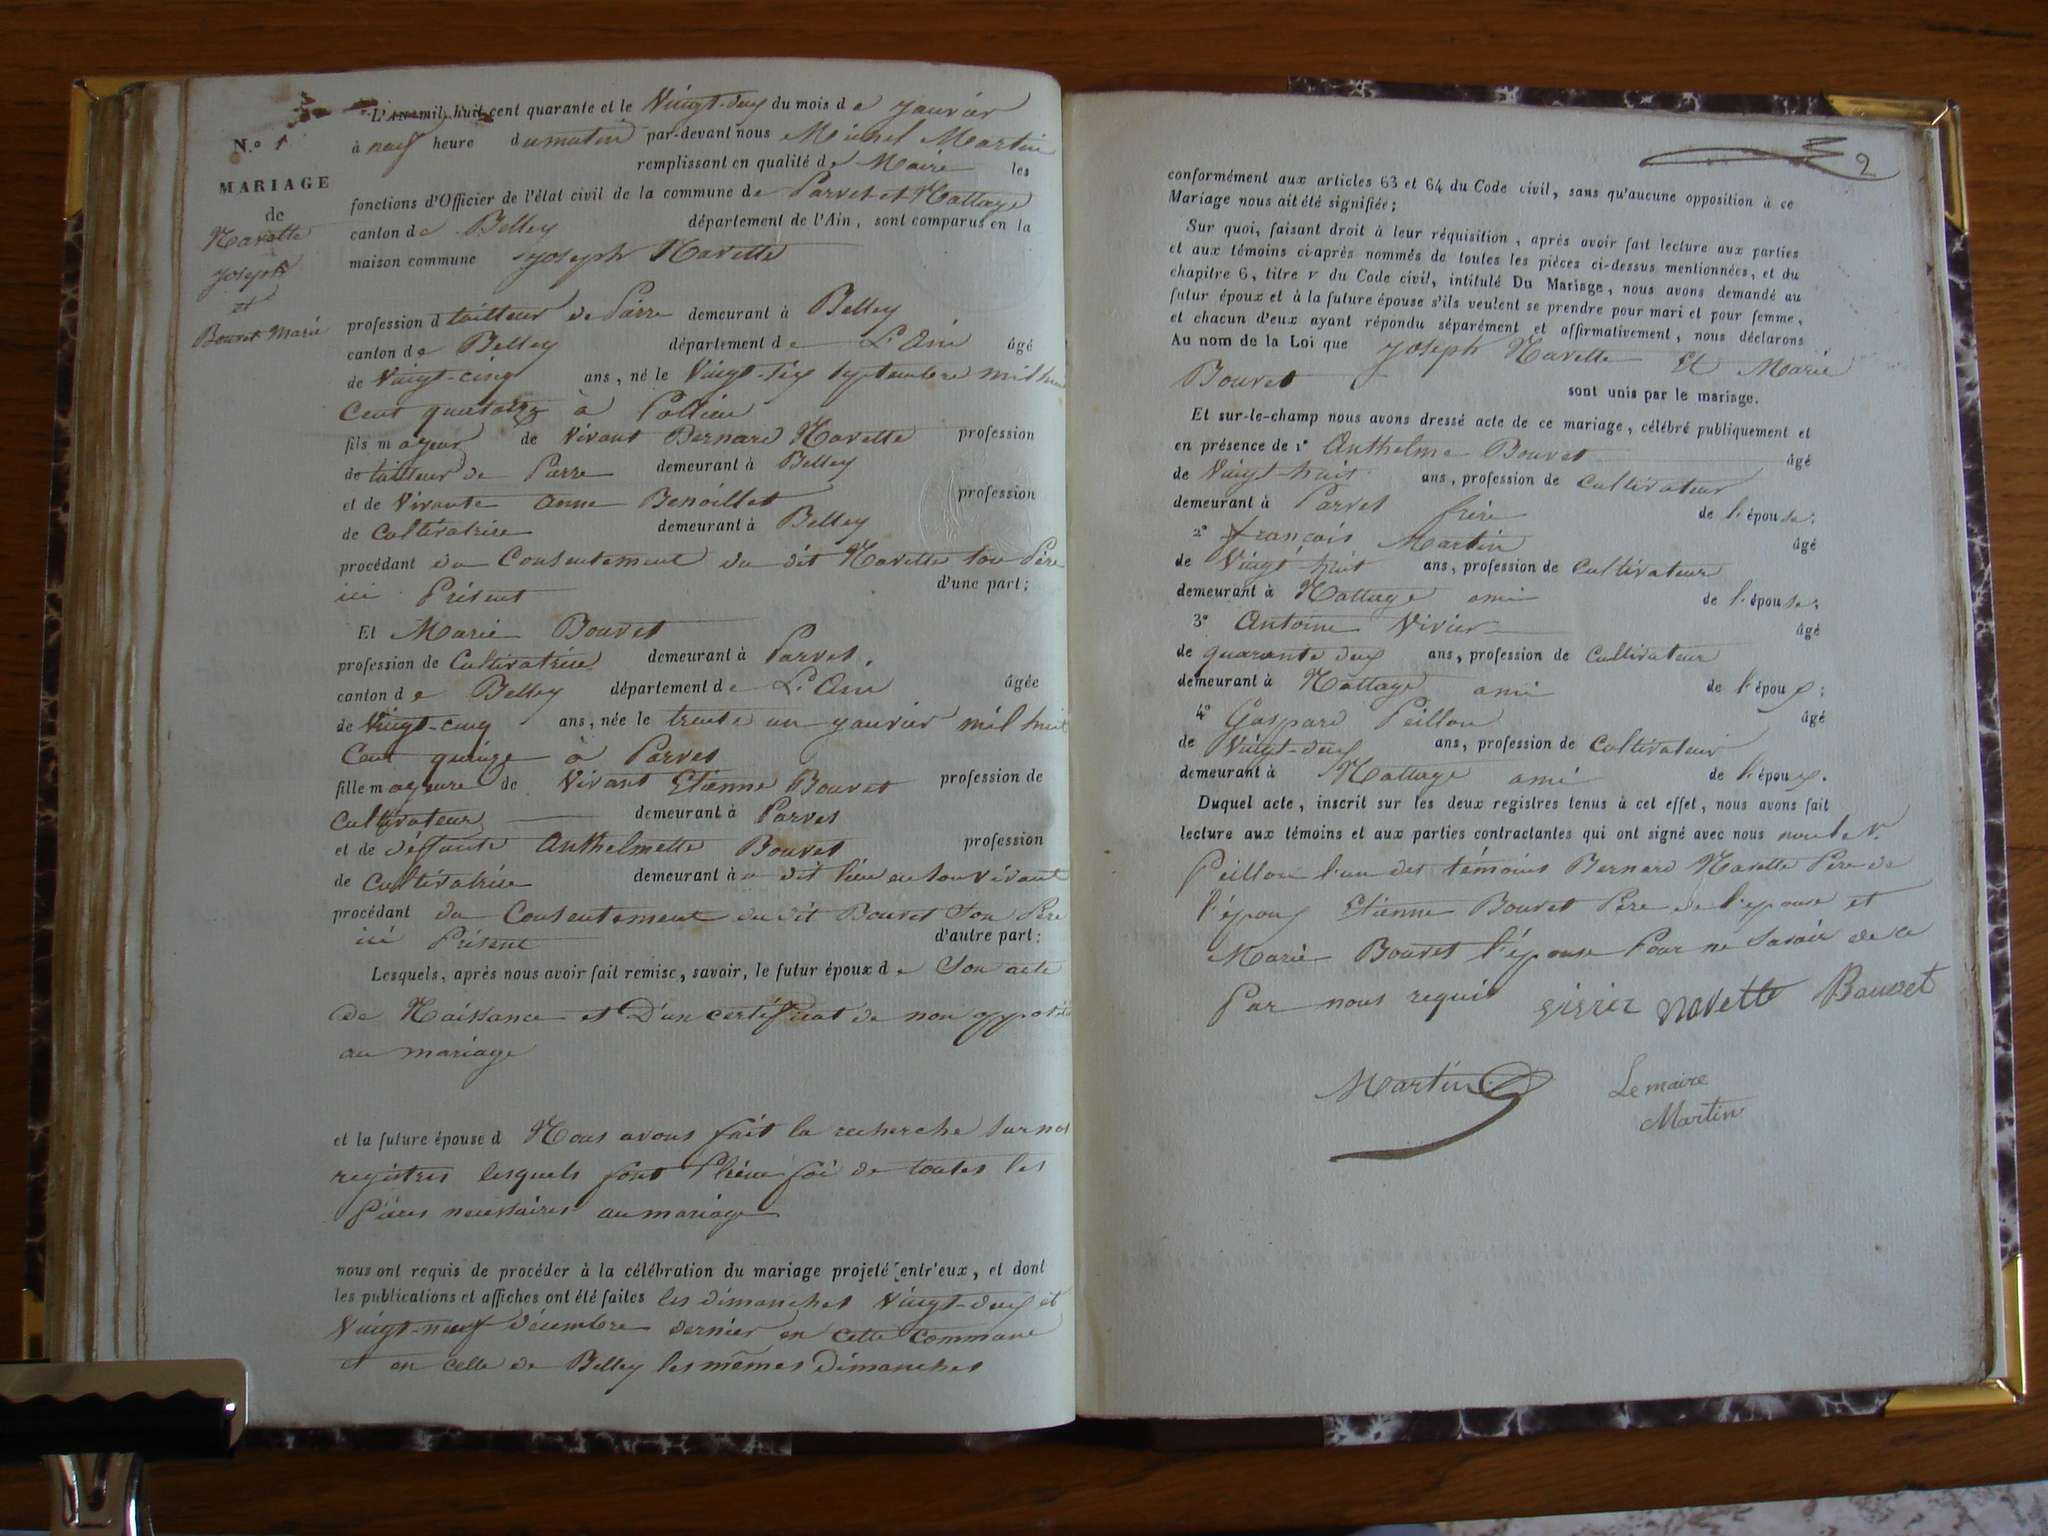 N.º 1
MARIAGE
de
Navette
joseph
et
Bouvet Marie
L'AN mil huit cent quarante et le Vingt-deux du mois de janvier
à neuf heure du matin par-devant nous Michel Martin
remplissant en qualité de Maire les
fonctions d'Officier de l'état civil de la commune de Parves et Nattage
canton de Belley département de l'Ain, sont comparus en la
maison commune joseph Navette
profession d tailleur de Pierre demeurant à Belley
canton de Belley département de L'Ain âgé
de Vingt-cinq ans, né le Vingt-six septembre mil huit
Cent quatorze à Pollieu
fils majeur de Vivant Bernard Navette profession
de tailleur de Pierre demeurant à Belley
et de Vivante anne Benoillet profession
de Cultivatrice demeurant à Belley
procédant du Consentement du dit Navette son Père
ici Présent d'une part;
Et Marie Bouvet
profession de Cultivatrice demeurant à Parves,
canton de Belley département de L'Ain âgée
de Vingt-cinq ans, née le trente un janvier mil huit
Cent quinze à Parves
fille majeure de Vivant Etienne Bouvet profession de
Cultivateur demeurant à Parves
et de défunte Anthelmette Bouvet profession
de Cultivatrice demeurant à dit lieu en son vivant
procédant du Consentement du dit Bouvet Son Père
ici Présent d'autre part;
Lesquels, après nous avoir fait remise, savoir, le futur époux de Son acte
de Naissance et D'un certificat de non opposition
au mariage
et la future épouse d Nous avons fait la recherche sur nos
registres lesquels font Pleine foi de toutes les
Pièces necessaires au mariage
nous ont requis de procéder à la célébration du mariage projeté entr'eux, et dont
les publications et affiches ont été faites les dimanches Vingt-deux et
Vingt-neuf décembre dernier en cette Commune
et en celle de Belley les mêmes Dimanches
2
conformément aux articles 63 et 64 du Code civil, sans qu'aucune opposition à ce
Mariage nous ait été signifiée;
Sur quoi, faisant droit à leur réquisition, après avoir fait lecture aux parties
et aux témoins ci-après nommés de toutes les pièces ci-dessus mentionnées, et du
chapitre 6, titre v du Code civil, intitulé Du Mariage, nous avons demandé au
futur époux et à la future épouse s'ils veulent se prendre pour mari et pour femme,
et chacun d'eux ayant répondu séparément et affirmativement, nous déclarons
Au nom de la Loi que joseph Navette Et Marie
Bouvet
sont unis par le mariage.
Et sur-le-champ nous avons dressé acte de ce mariage, célébré publiquement et
en présence de 1º Anthelme Bouvet âgé
de Vingt-huit ans, profession de Cultivateur
demeurant à Parves frère de l'épouse;
2º françois Martin âgé
de Vingt huit ans, profession de Cultivateur
demeurant à Nattage ami de l'épouse;
3º Antoine Vivier âgé
de quarante deux ans, profession de Cultivateur
demeurant à Nattage ami de l'époux;
4º Gaspard Peillon âgé
de Vingt-deux ans, profession de Cultivateur
demeurant à Nattage ami de l'époux.
Duquel acte, inscrit sur les deux registres tenus à cet effet, nous avons fait
lecture aux témoins et aux parties contractantes qui ont signé avec nous non le sr
Peillon l'un des témoins Bernard Navette Père de
l'époux Etienne Bouvet Père de l'epouse et
Marie Bouvet l'épouse Pour ne Savoir de ce
Par nous requis navette Bouvet
Martin Le maire
Martin